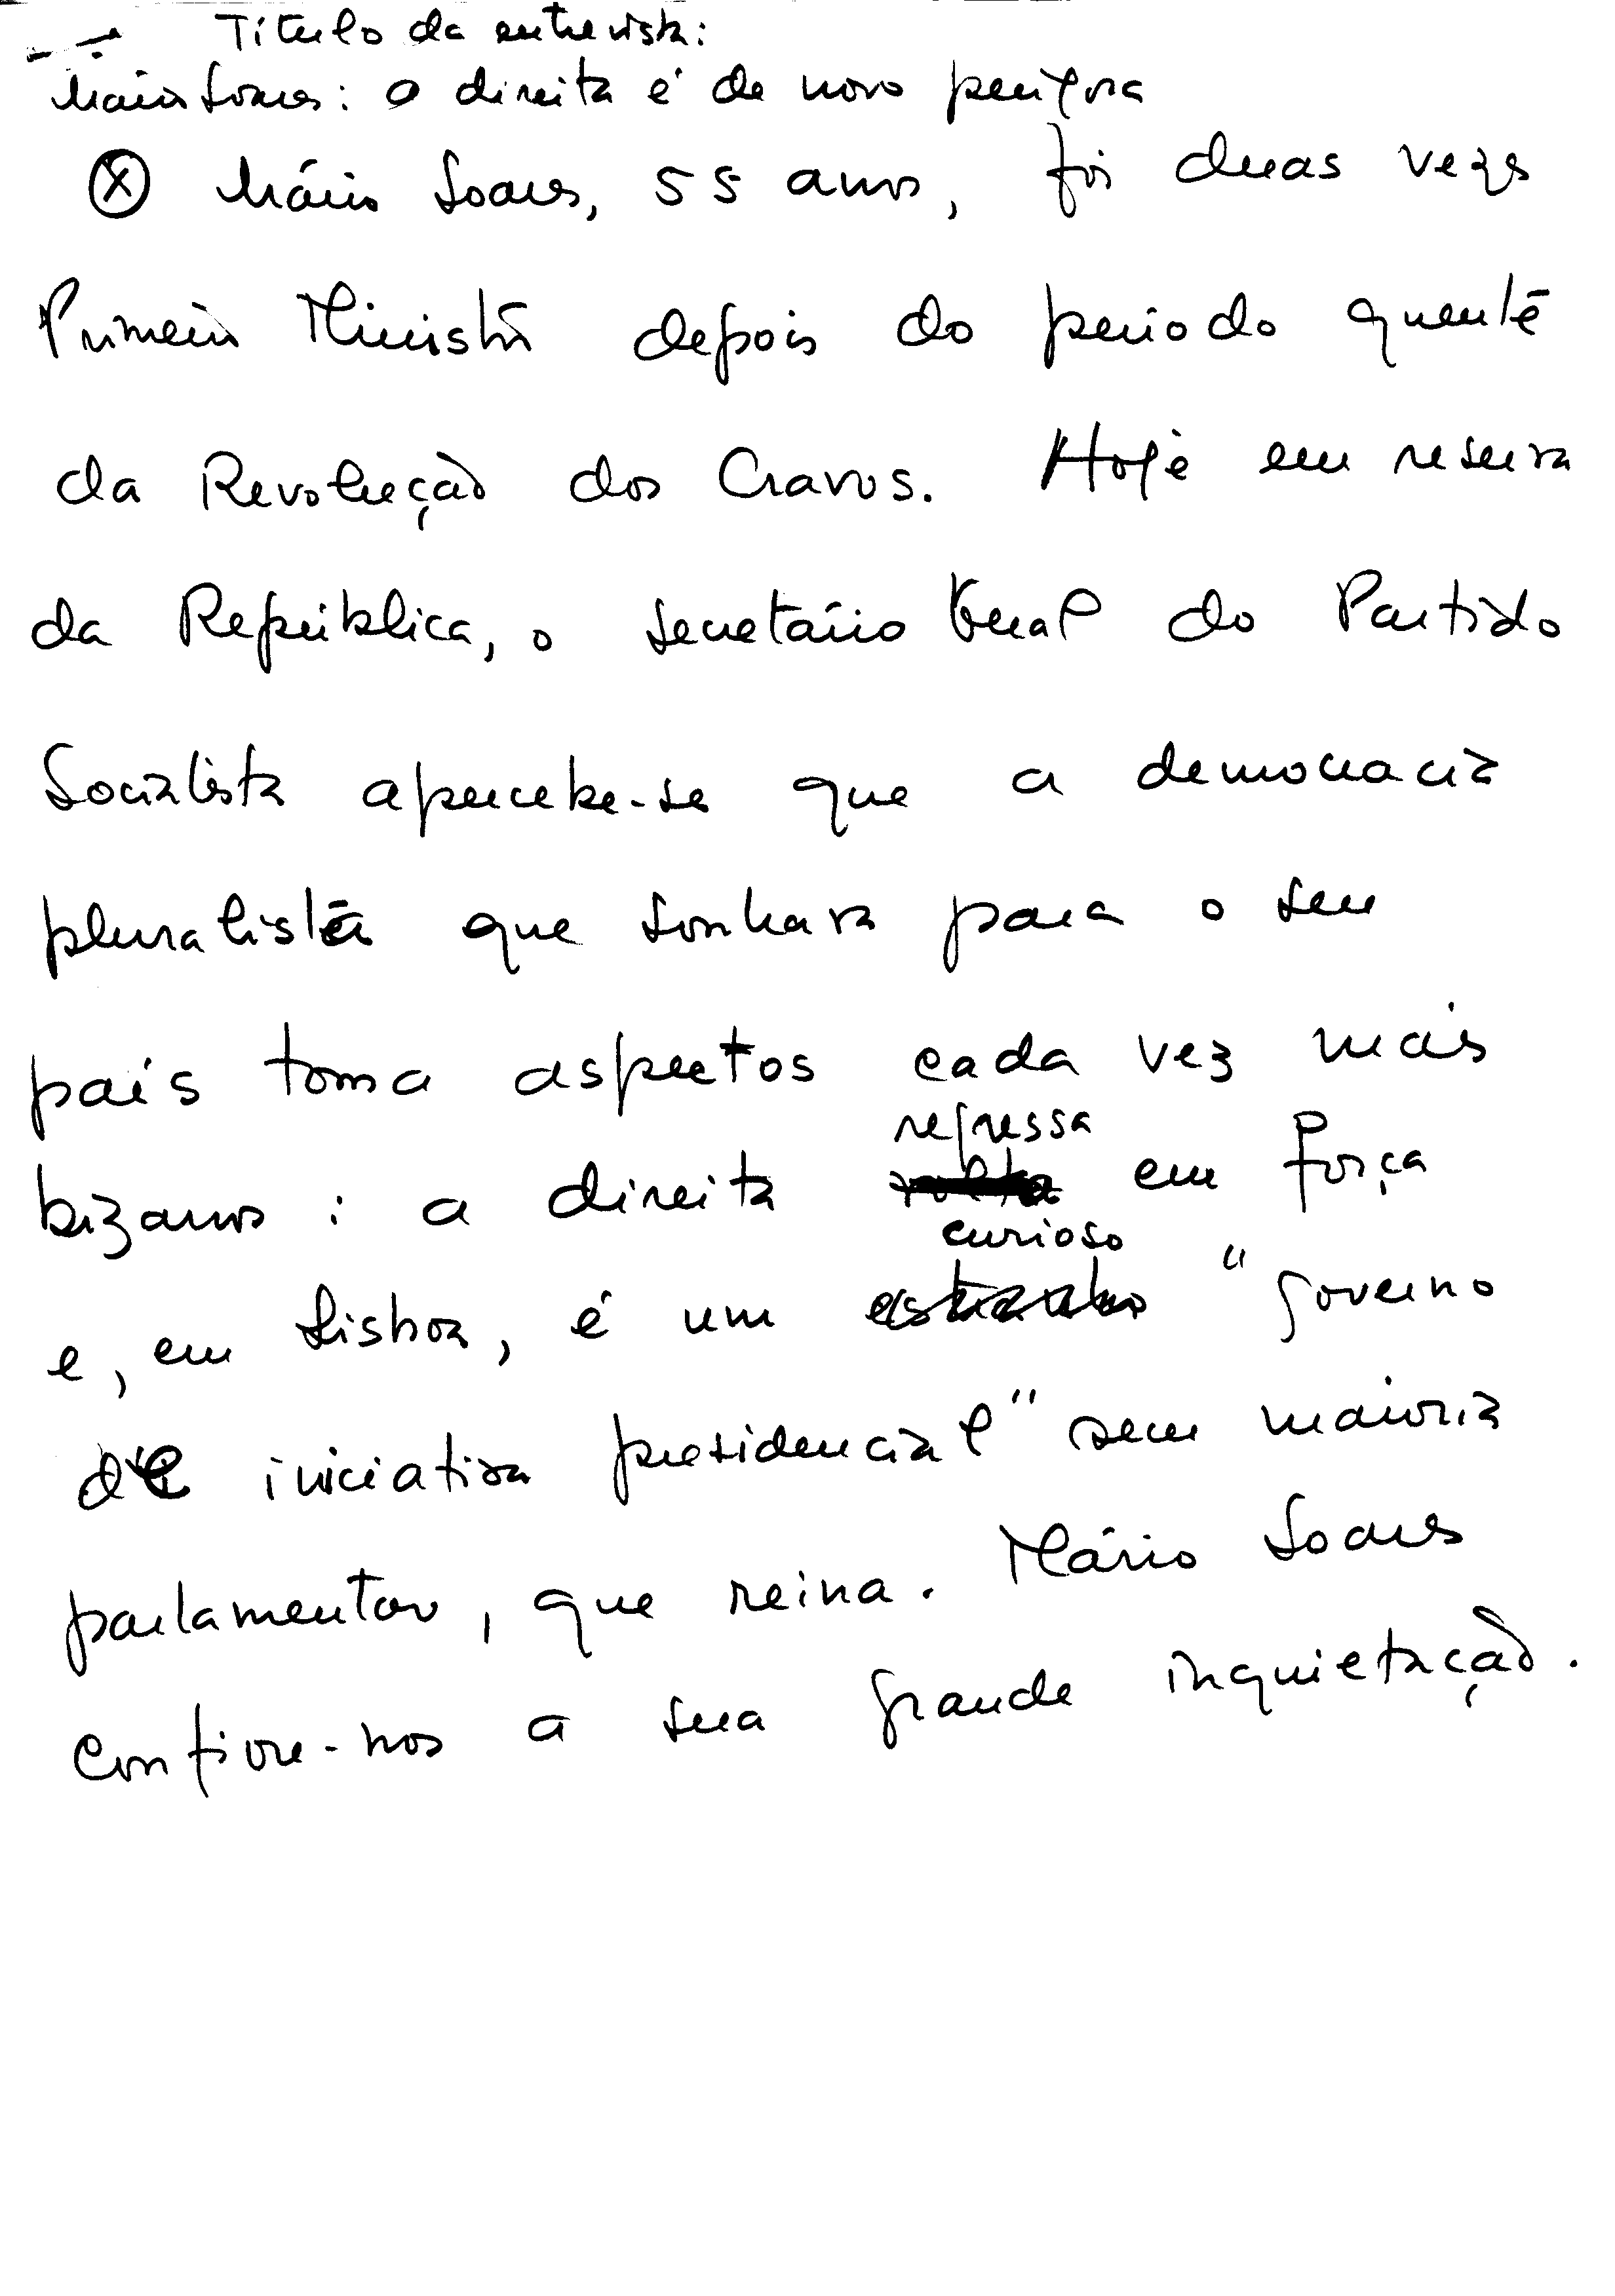 Título da entrevista:
Mário Soares: a direita é de novo perigosa
⊗ Mário Soares, 55 anos, foi duas vezes
Primeiro Ministro depois do período quente
da Revolução dos Cravos. Hoje em reserva
da República, o secretário Geral do Partido
Socialista apercebe-se que a democracia
pluralista que sonhara para o seu
país toma aspectos cada vez mais
regressa
bizarros: a direita volta em força
curioso
e, em Lisboa, é um estranho "governo
de iniciativa presidencial" sem maioria
parlamentar, que reina. Mário Soares
confiou-nos a sua grande inquietação.